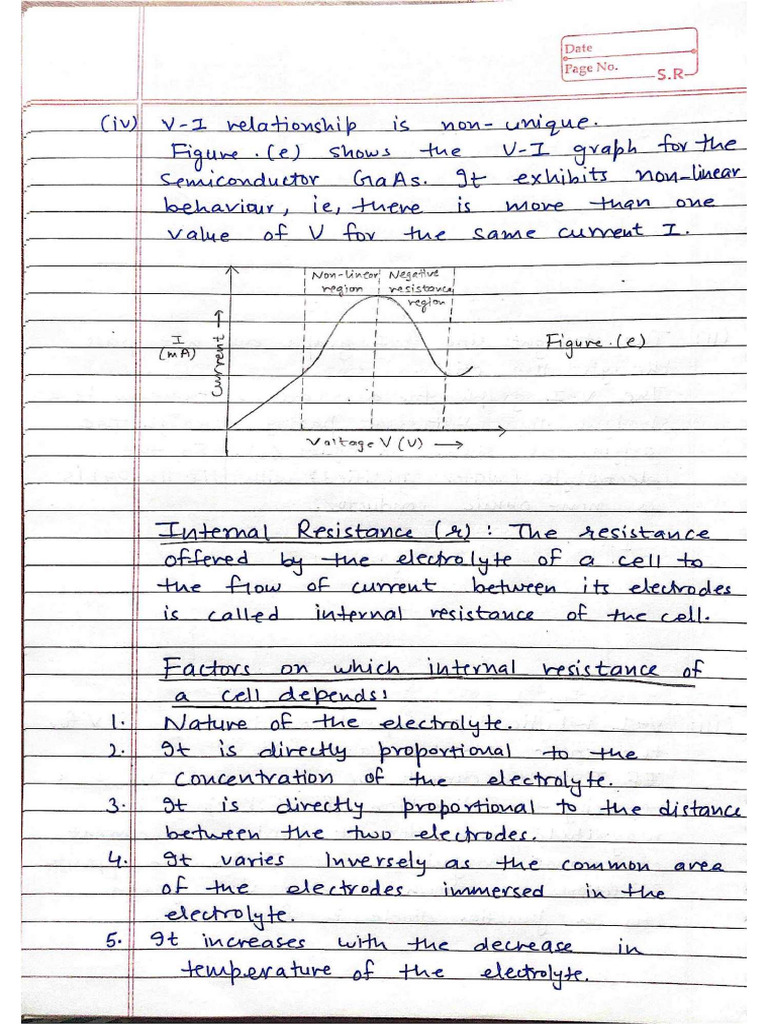 Date
Page No.
S.R
(iv) V-I relationship is non-unique.
Figure.(e) shows the V-I graph for the
semiconductor GaAs. It exhibits non-linear
behaviour, ie, there is more than one
value of V for the same current I.
Non-linear region
Negative resistance region
I (mA)
Current →
Figure.(e)
Voltage V (V) →
Internal Resistance (r) : The resistance
offered by the electrolyte of a cell to
the flow of current between its electrodes
is called internal resistance of the cell.
Factors on which internal resistance of
a cell depends:
1. Nature of the electrolyte.
2. It is directly proportional to the
concentration of the electrolyte.
3. It is directly proportional to the distance
between the two electrodes.
4. It varies Inversely as the common area
of the electrodes immersed in the
electrolyte.
5. It increases with the decrease in
temperature of the electrolyte.